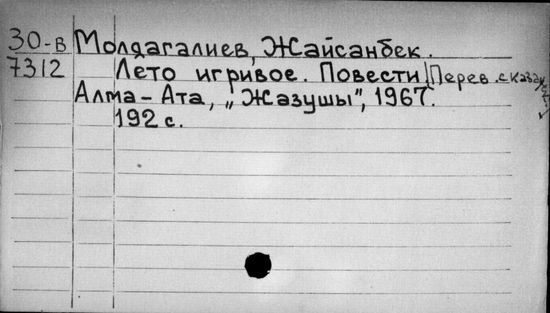 30-в Молдагалиев, Жайсанбек.
7312 Лето игривое. Повести. Перев. с казах.
Алма-Ата, „Жазушы", 1967.
192 с.